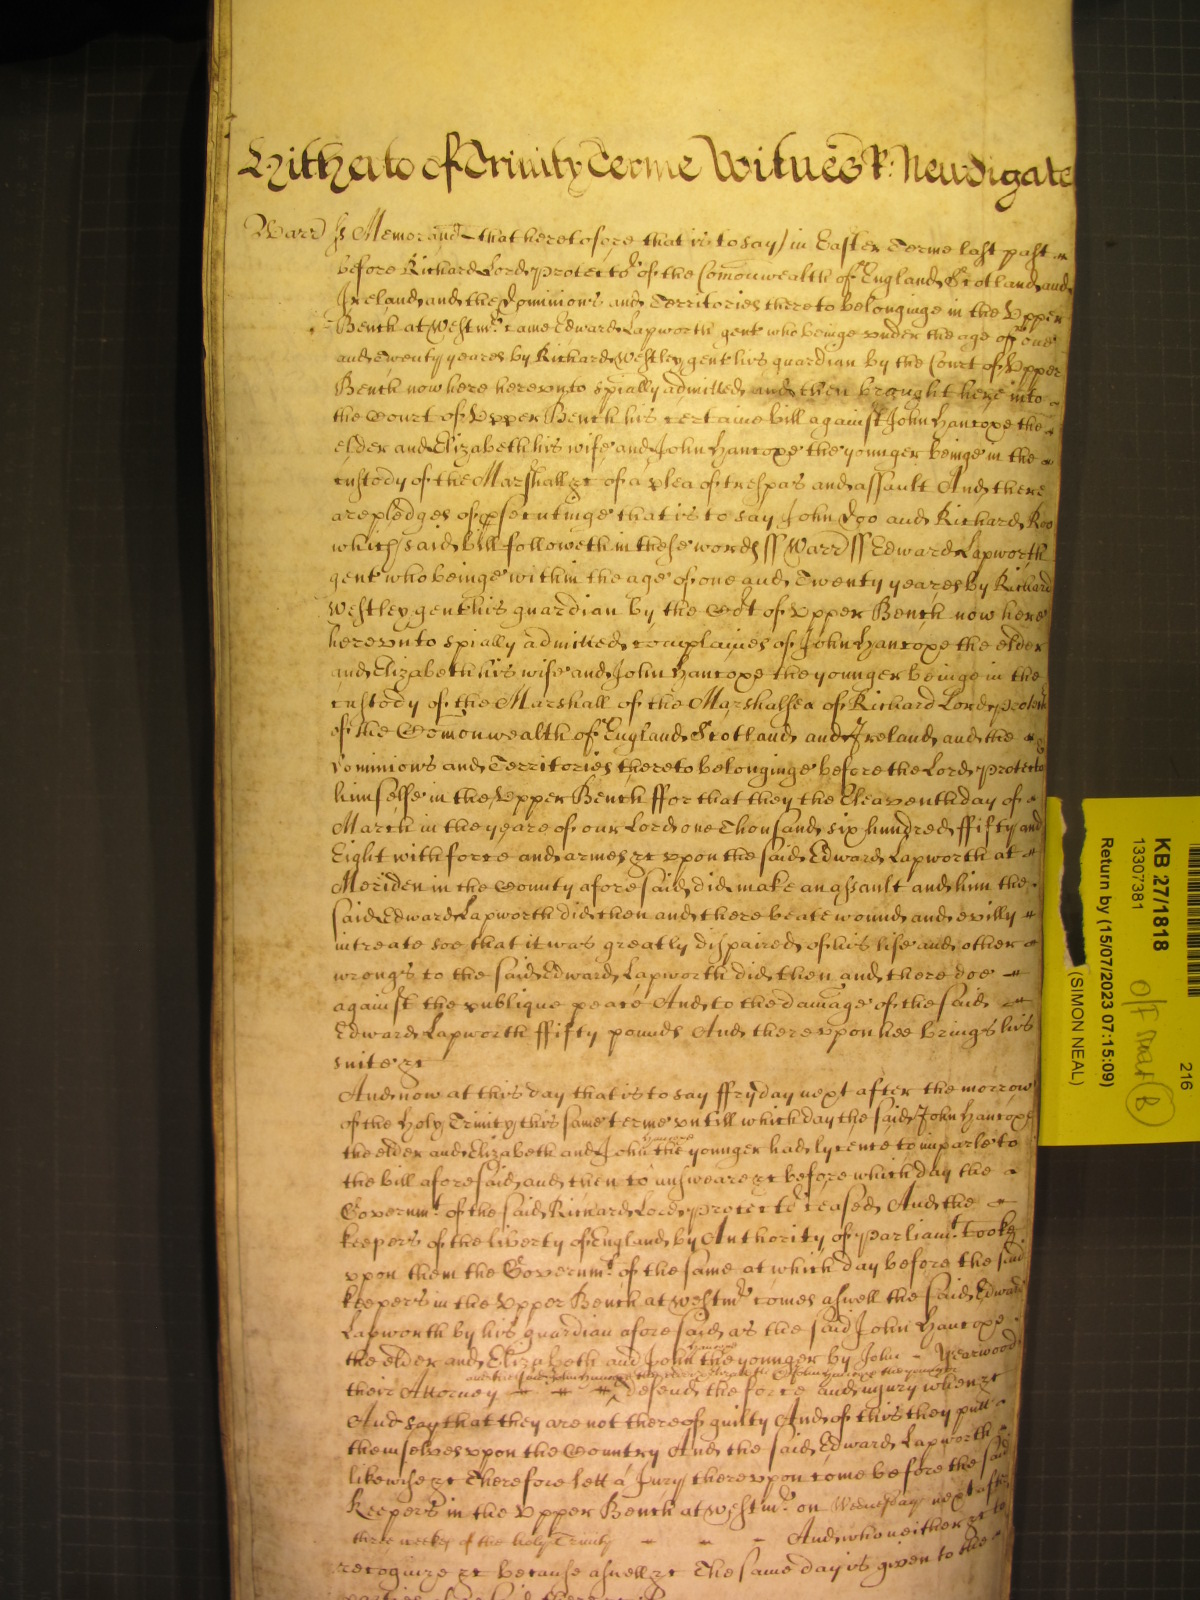 Hitherto of Trinity Terme Witnes R: Newdigate
Warr ss Memorand that heretofore that is to say in Easter Terme last past
before Richard Lord Protector of the Comonwealth of England Scotland and
Ireland and the Dominions and Territories thereto belonginge in the Upper
Bench at Westmr came Edward Lapworth gent who beinge under the age of one
and twenty yeares by Richard Westley gent his guardian by the Court of Upper
Bench now here hereunto spially admitted and then brought here into
the Court of Upper Bench his certaine bill against John Hancoxe the
elder and Elizabeth his wife and John Hancoxe the younger beinge in the
custody of the Marshall &c of a plea of trespas and assault And there
are pledges of psecutinge that is to say John Doo and Richard Roo
which said bill followeth in these words ss Warr ss Edward Lapworth
gent who beinge within the age of one and Twenty yeares by Richard
Westley gent his guardian by the Cort of Upper Bench now here
hereunto spially admitted complaines of John Hancoxe the elder
and Elizabeth his wife and John Hancoxe the younger beinge in the
custody of the Marshall of the Marshalsea of Richard Lord Protector
of the Comonwealth of England Scotland and Ireland and the
Dominions and Territories thereto belonginge before the Lord Protector
himselfe in the Upper Bench ffor that they the Eleaventh day of
March in the yeare of our Lord one Thousand six hundred ffifty and
Eight with force and armes &c upon the said Edward Lapworth at
Meriden in the County aforesaid did make an assault and him the
said Edward Lapworth did then and there beate wound and evilly
intreate soe that it was greatly dispaired of his life and other
wrongs to the said Edward Lapworth did then and there doe
against the publique peace And to the damage of the said
Edward Lapworth ffifty pounds And thereupon hee brings his
suite &c
And now at this day that is to say ffryday next after the morrow
of the Holy Trinity this same terme untill which day the said John Hancoxe
the elder and Elizabeth and John Hancoxe the younger had lycence to imparle to
the bill aforesaid and then to answeare &c before which day the
Governmt of the said Richard Lord Protector ceased And the
keepers of the liberty of England by Authority of Parliamt Tooke
upon them the Governmt of the same at which day before the said
keepers in the Upper Bench at Westmr comes aswell the said Edward
Lapworth by his guardian aforesaid as the said John Hancoxe
the elder and Elizabeth and John Hancoxe the younger by John Yearwood
their Attorney
defend the force and injury when &c
And say that they are not thereof guilty And of this they putt
themselves upon the Country And the said Edward Lapworth
likewise &c Therefore lett a Jury thereupon come before the said
Keepers in the Upper Bench at Westmr on Wednesday next after
three weekes of the holy Trinity And who neither &c to
recognize &c because aswell &c The same day is given to the
KB 27/1818
13307381
Return by (15/07/2023 07:15:09)
(SIMON NEAL)
216